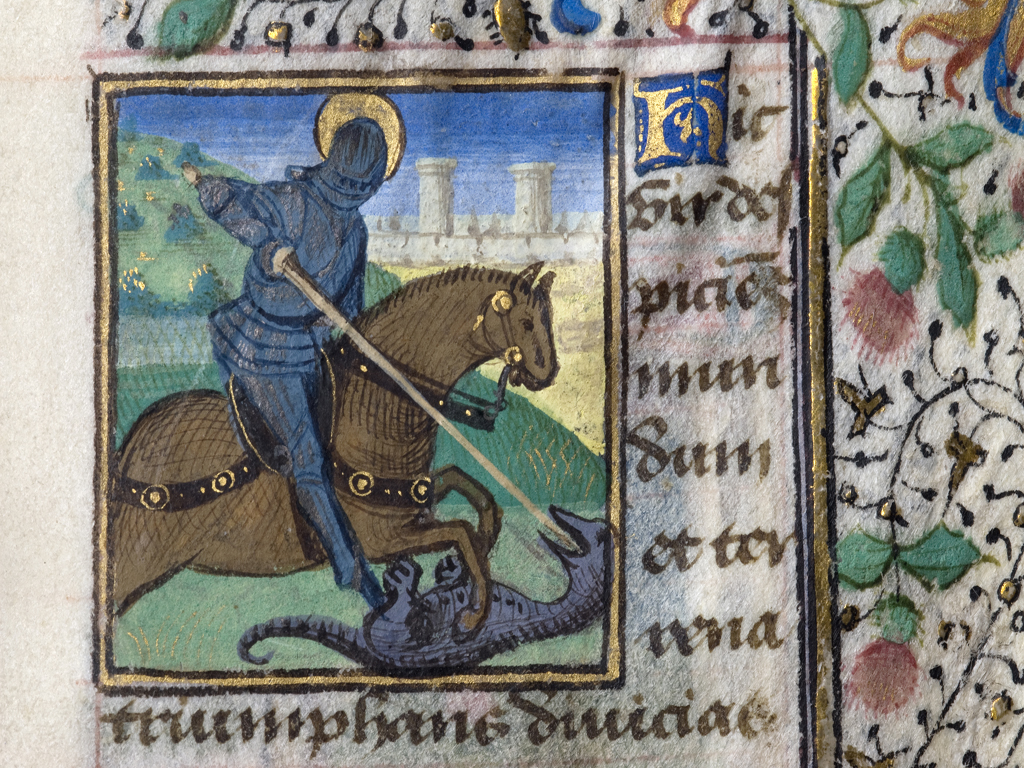 Hic
vir des
piciēs
mun
dum
et ter
rena
triumphans diuicias